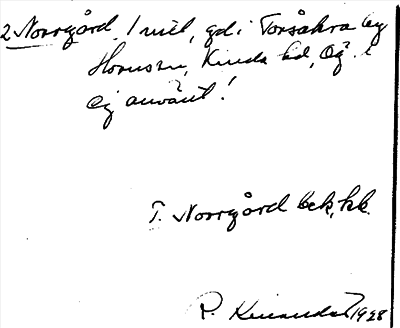 2 Norrgård, 1 mtl, gd i Torsåkra by
Hornsn, Kinda hd, Ög. l
Ej använt!
T. Norrgård bek, kk.
P. 1928